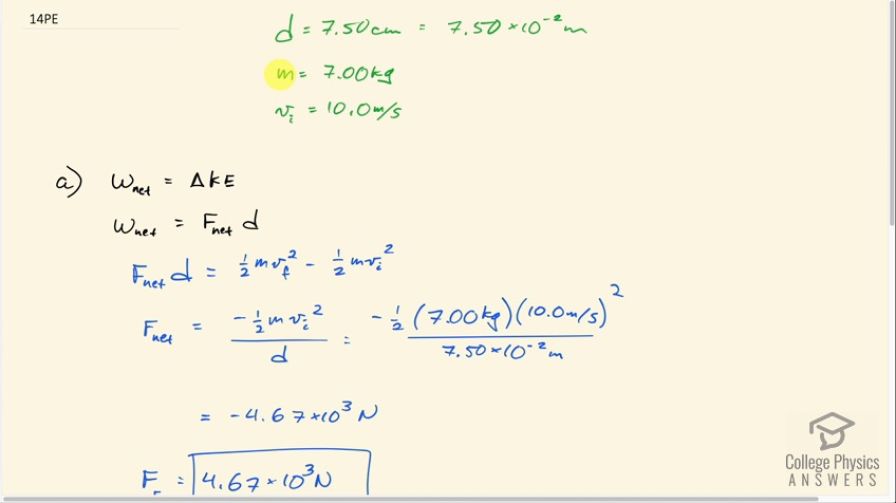 14PE
d = 7.50 cm = 7.50 × 10⁻² m
m = 7.00 kg
vᵢ = 10.0 m/s
a) W_net = ΔKE
W_net = F_net d
F_net d = ½ m v_f² - ½ m vᵢ²
F_net = (-½ m vᵢ²) / d = (-½ (7.00 kg)(10.0 m/s)²) / (7.50 × 10⁻² m)
= -4.67 × 10³ N
F = 4.67 × 10³ N
College Physics
ANSWERS